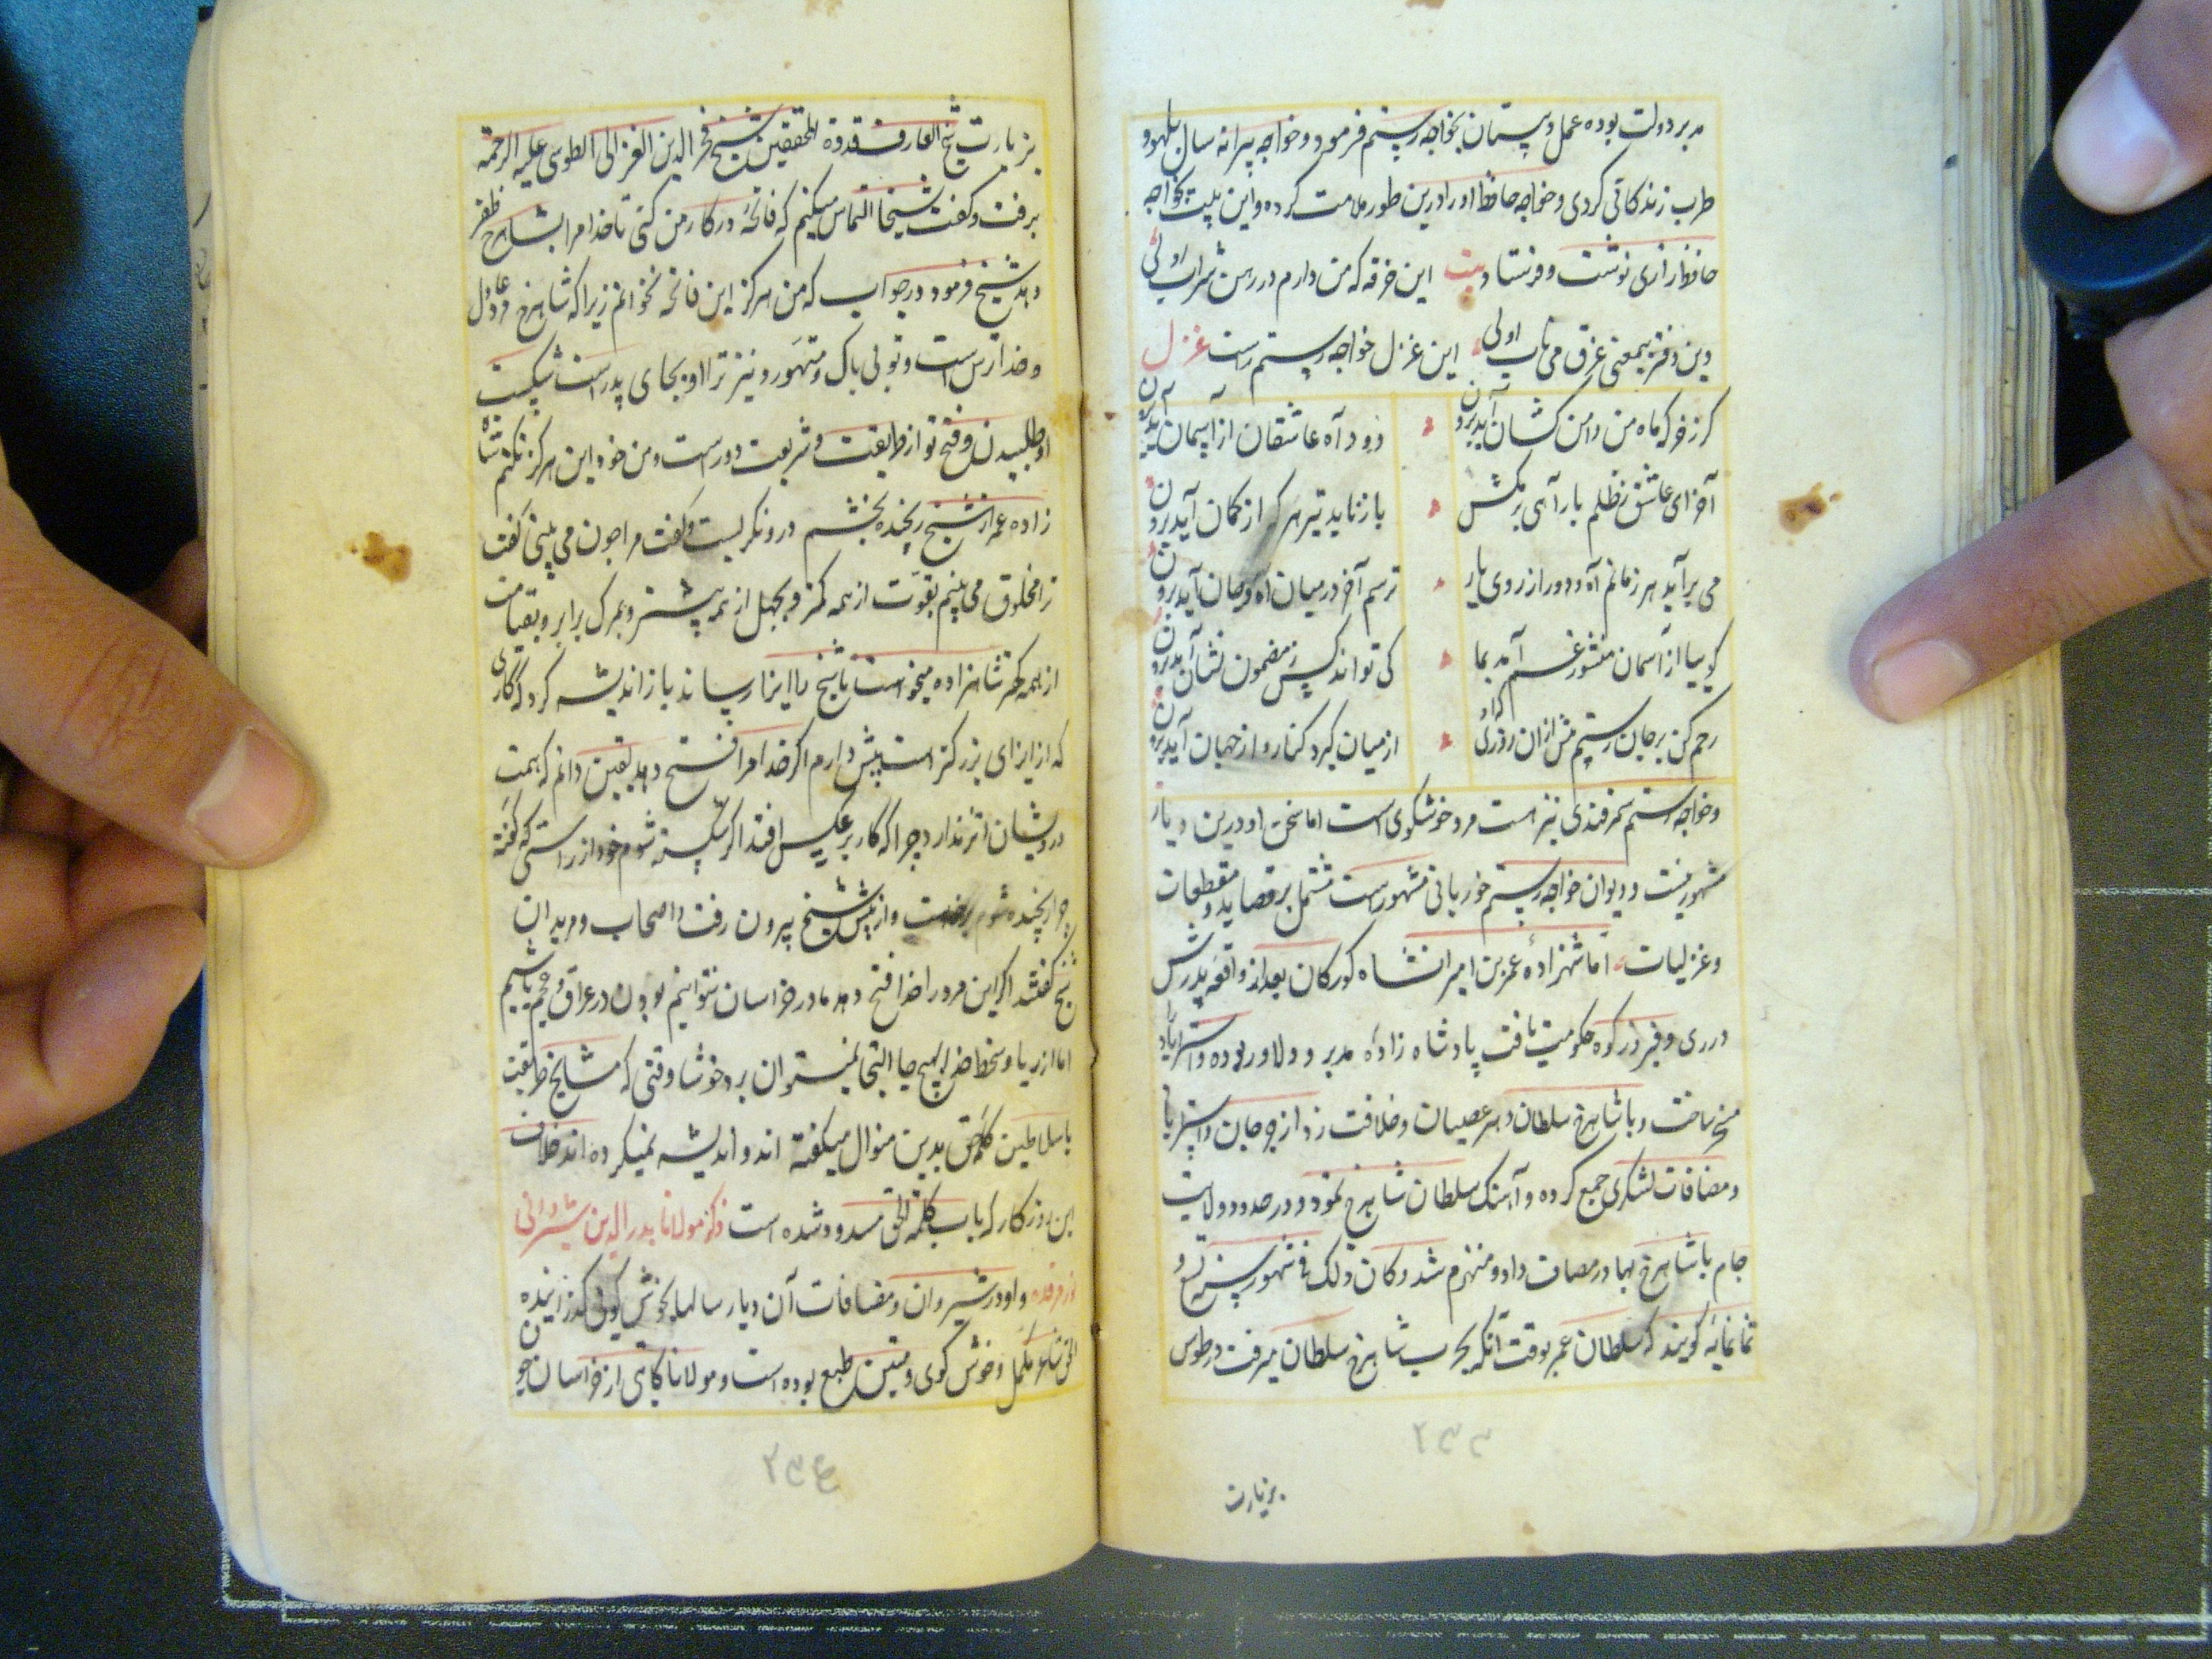 مدبر دولت بوده عمل دبستان بخواجه رستم فرمود و خواجه پیرانه سال بلهو و
طرب زندکانی کردی و خواجه حافظ او را درین طور ملامت کرده و این بیت بخواجه
حافظ رازی نوشت و فرستاد بیت این خرقه که من دارم در رهن شراب اولی
وین دفتر بیمعنی غرق می ناب اولی این غزل خواجه رستم راست غزل
کر ز خرکه ماه من دامن کشان آید برون دود آه عاشقان از آسمان آید برون
آخر ای عاشق ز ظلم یار آهی برمکش باز ناید تیر هر کز از کمان آید برون
می برآید هر زمانم آه و دور از روی یار ترسم آخر در میان آه کو جان آید برون
کوییا از آسمان منشور غم آمد بما کی تواند کس ز مضمون نشان آید برون
رحم کن بر جان رستم مش ازان روزی که او از میان کیرد کنار و از جهان آید برون
و خواجه رستم سمرقندی نیز است مرد خوشکوی است اما سخن او درین دیار
مشهور نیست و دیوان خواجه رستم خوریانی مشهور است مشتمل بر قصاید و مقطعات
و غزلیات اما شهزاده عمر بن امیرانشاه کورکان بعد از واقعه پدرش
در ری و فیروزکوه حکومت یافت پادشاه زاده مدبر و دلاور بوده و استراباد
مسخر ساخت و با شاهرخ سلطان دم عصیان و خلافت زد از جرجان و استراباد
و مضافات لشکری جمع کرده و آهنک سلطان شاهرخ نمود و در حدود ولایت
جام با شاهرخ بهادر مصاف داد و منهزم شد و کان ذلک فی شهور سنه تسع و
ثمانمایه کویند که سلطان عمر بوقت آنکه بحرب شاهرخ سلطان میرفت در طوس
۲۳۳
بزیارت
بزیارت شیخ العارف قدوة المحققین شیخ فخر الدین الغزالی الطوسی علیه الرحمة
برفت و کفت شیخا التماس میکنم که فاتحه در کار من کنی تا خدا مرا بشاهرخ ظفر
دهد شیخ فرمود در جواب که من هرکز این فاتحه نخوانم زیرا که شاهرخ مرد عادل
و خدا ترس است و تو بی باک و متهور و نیز ترا او بجای پدر است شکست
او طلبیدن و فتح تو از طریقت و شریعت دور است و من خود این هرکز نکنم شاه
زاده عمر از شیخ رنجیده بخشم درو نکریست و کفت مرا چون می بینی کفت
ترا مخلوق می بینم بقوت از همه کمتر و بجهل از همه بیشتر و بمرک برابر و بقیامت
از همه کمتر شاهزاده میخواست تا شیخ را ایذا رساند باز اندیشه کرد که کاری
که از ایذای بزرکتر است پیش دارم اکر خدا مرا فتح دهد یقین دانم که همت
درویشان اثر ندارد چرا که کار برعکس افتد اکر شکسته شوم خود از راستی که کفته
چرا رنجیده شوم برخاست و از پیش شیخ بیرون رفت و اصحاب و مریدان
شیخ کفتند اکر این مرد را خدا فتح دهد ما در خراسان نتوانیم بودن در عراق و عجم باشیم
اما از ریا و سخط خدا بهیچ جا التجا نمیتوان برد خوشا وقتی که مشایخ طریقت
با سلاطین کلمه حق بدین منوال میکفته اند و اندیشه نمیکرده اند خلاف
این روزکار که باب کلمة الحق مسدود شده است ذکر مولانا بدر الدین شیروانی
نور مرقده و او در شیروان و مضافات آن دیار سالها بخوش کویی کذرانیده
الحق شاعر مکمل و خوش کوی و متین طبع بوده است و مولانا کاتبی از خراسان چون
۲۳۴